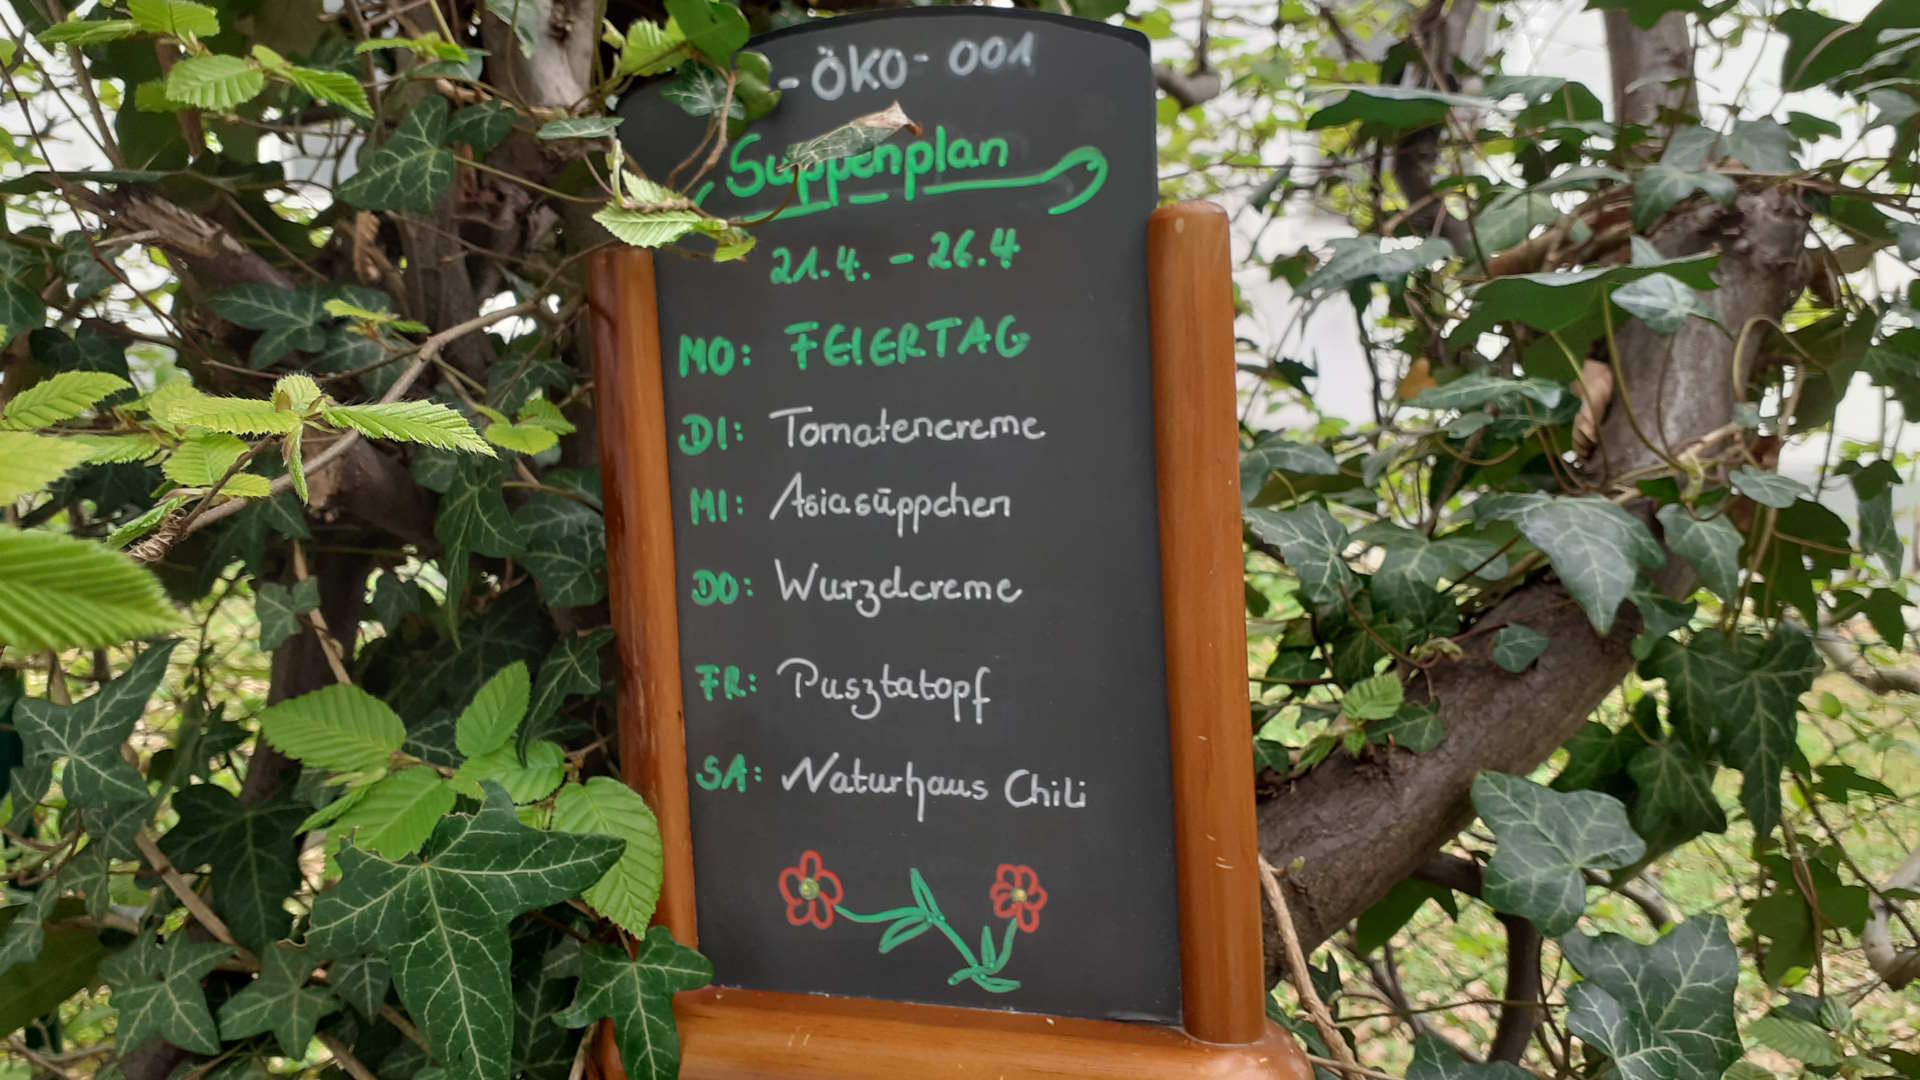 -ÖKO-001
Suppenplan
21.4. - 26.4
MO: FEIERTAG
DI: Tomatencreme
MI: Asiasüppchen
DO: Wurzelcreme
FR: Pusztatopf
SA: Naturhaus Chili